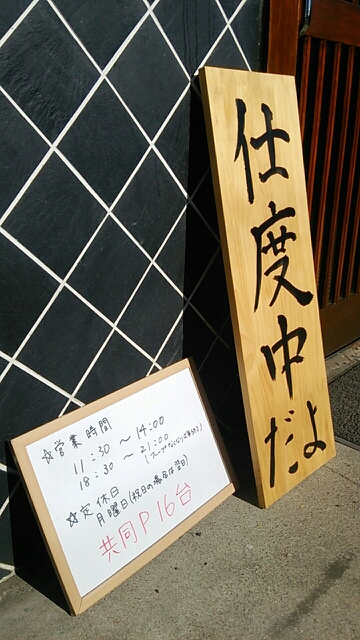 仕度中だよ
☆営業時間
11:30 ~ 14:00
18:30 ~ 21:00
(スープなくなり次第終了)
☆定休日
月曜日(祝日の場合は翌日)
共同P 16台